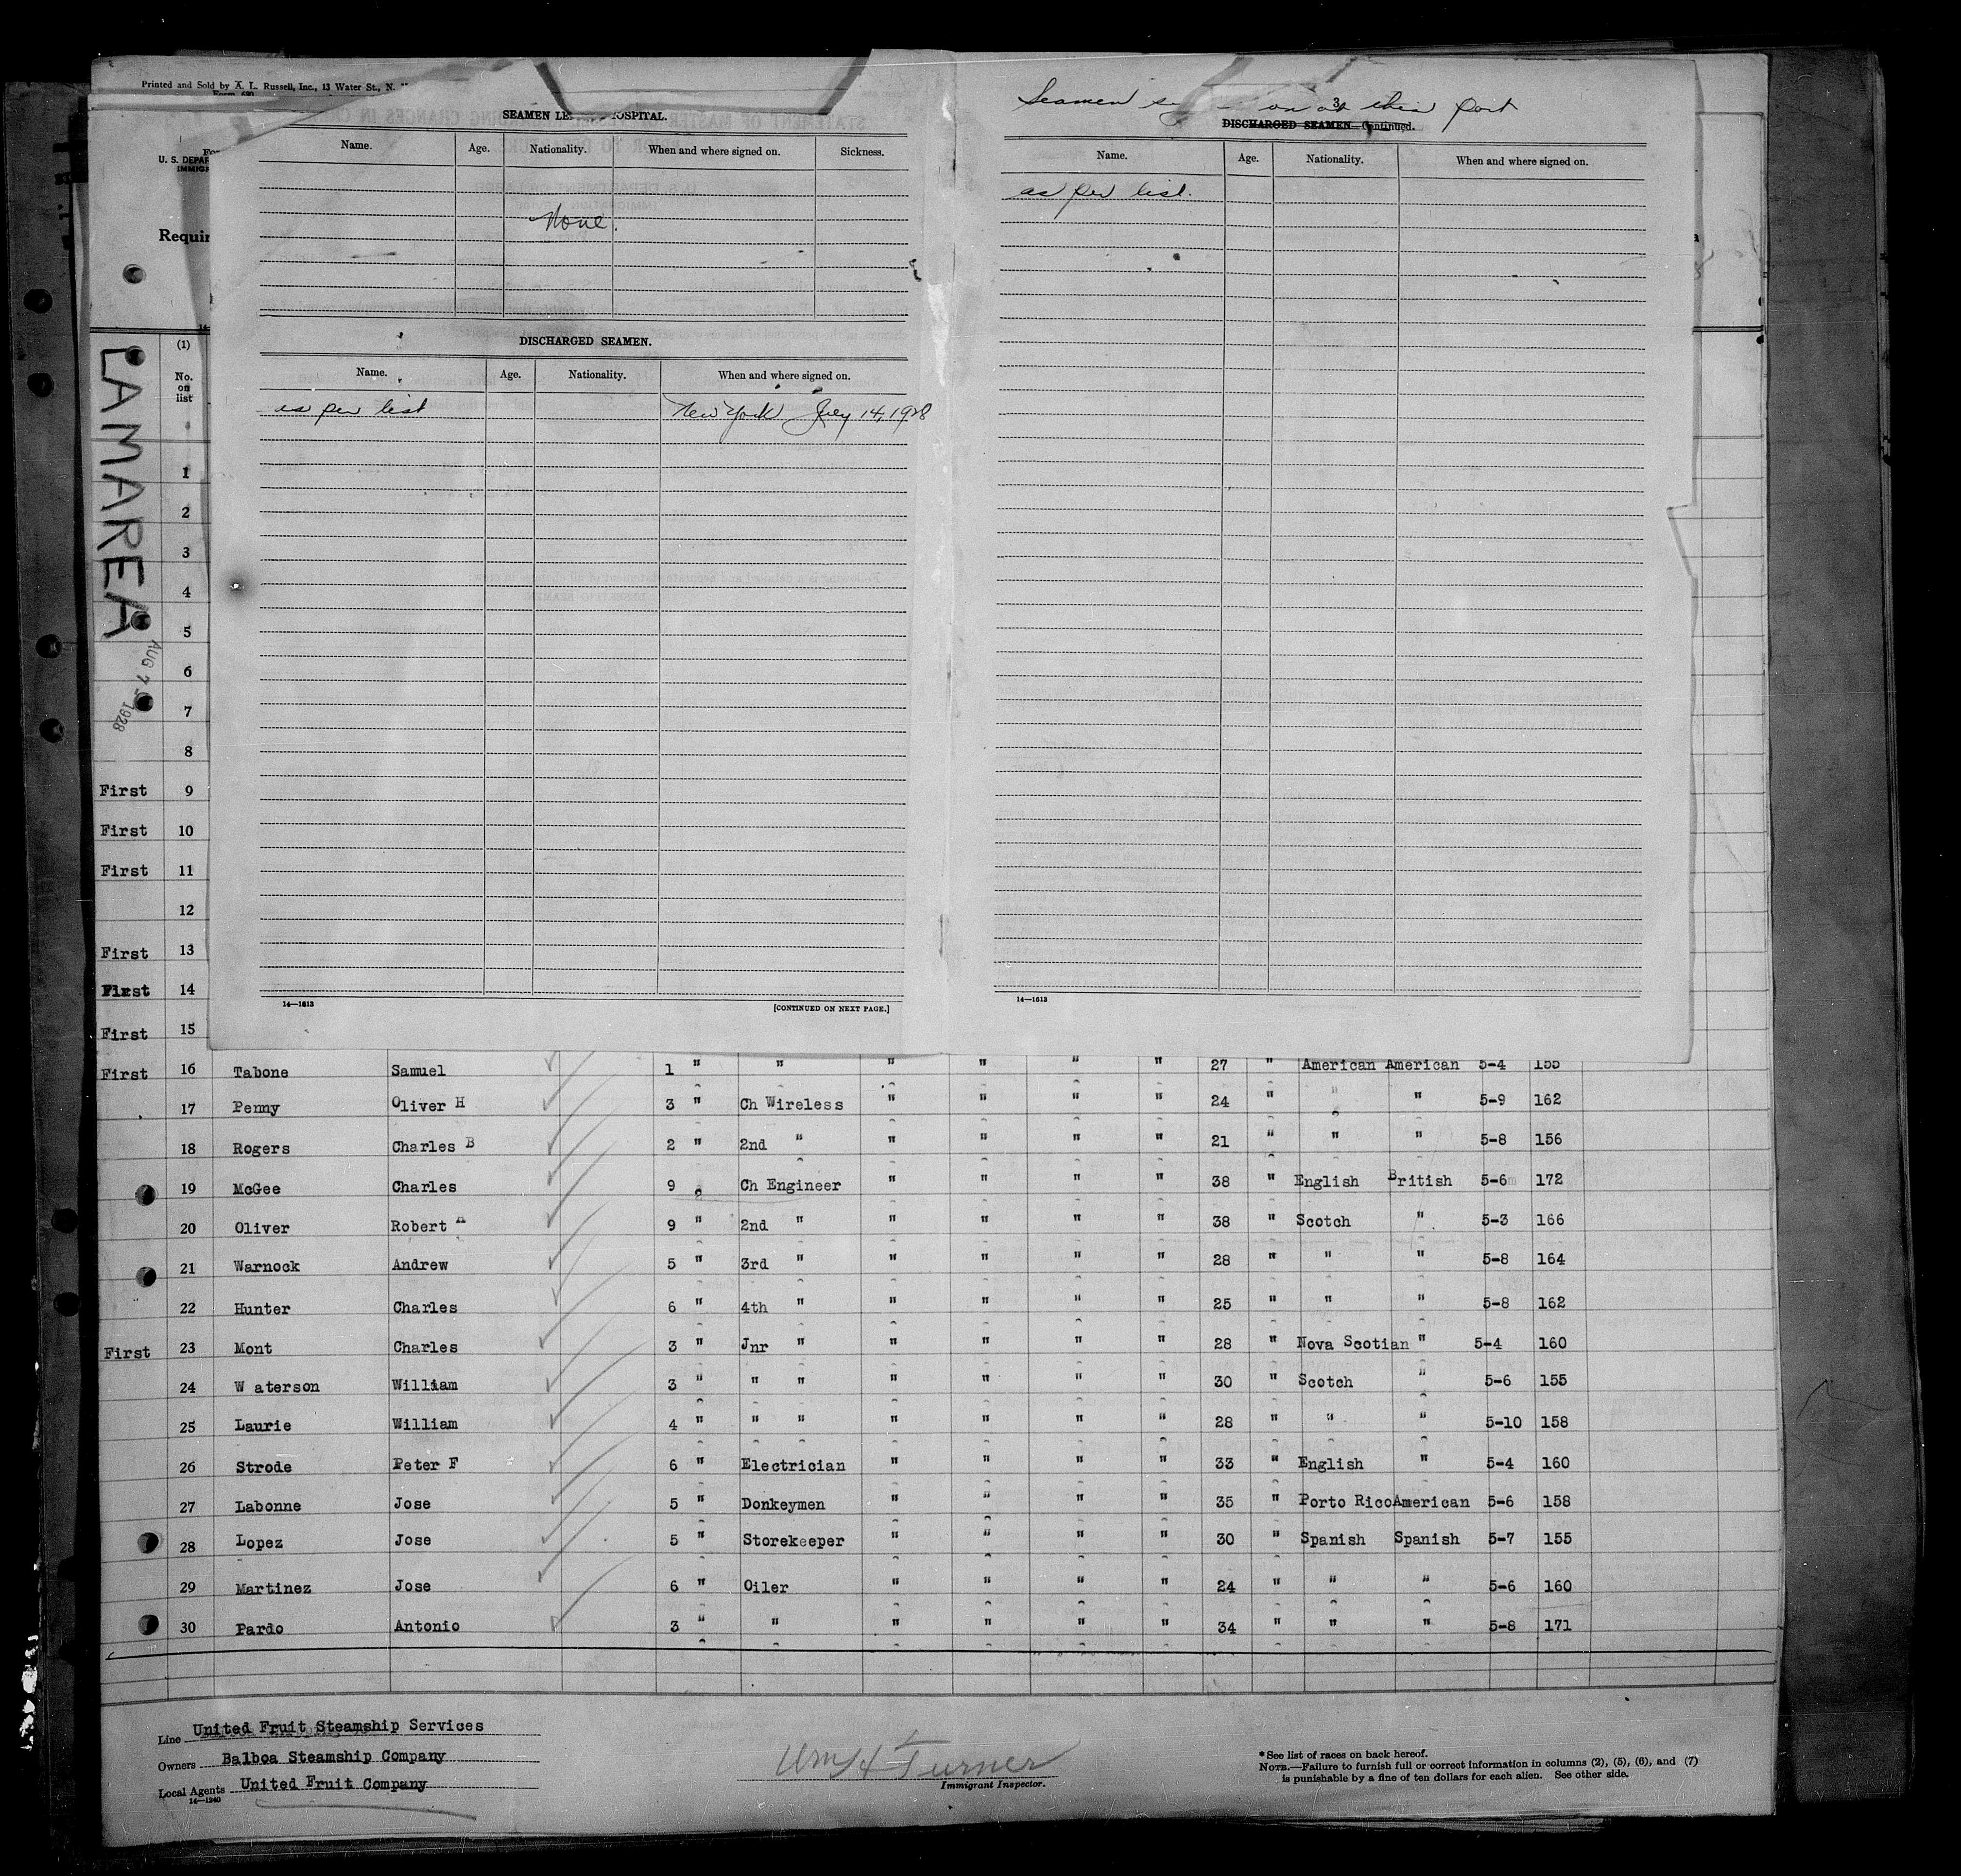 Printed and Sold by A. L. Russell, Inc., 13 Water St., N.
Form 680
U. S. DEPAR
IMMIGR
Requir
LAMAREA
AUG 7 1928
SEAMEN LE OSPITAL.
Name. Age. Nationality. When and where signed on. Sickness.
None.
DISCHARGED SEAMEN.
Name. Age. Nationality. When and where signed on.
as per list New York July 14, 1928
14—1613 [CONTINUED ON NEXT PAGE.]
Seamen on at this port
3
DISCHARGED SEAMEN—Continued.
Name. Age. Nationality. When and where signed on.
as per list.
14—1613
(1)
No. on list
1
2
3
4
5
6
7
8
First 9
First 10
First 11
12
First 13
First 14
First 15
First 16 Tabone Samuel 1 " " " " " " 27 " American American 5-4 155
17 Penny Oliver H 3 " Ch Wireless " " " " 24 " " " 5-9 162
18 Rogers Charles B 2 " 2nd " " " " " 21 " " " 5-8 156
19 McGee Charles 9 " Ch Engineer " " " " 38 " English British 5-6 172
20 Oliver Robert A 9 " 2nd " " " " " 38 " Scotch " 5-3 166
21 Warnock Andrew 5 " 3rd " " " " " 28 " " " 5-8 164
22 Hunter Charles 6 " 4th " " " " " 25 " " " 5-8 162
First 23 Mont Charles 3 " Jnr " " " " " 28 " Nova Scotian " 5-4 160
24 W aterson William 3 " " " " " " " 30 " Scotch " 5-6 155
25 Laurie William 4 " " " " " " " 28 " " " 5-10 158
26 Strode Peter F 6 " Electrician " " " " 33 " English " 5-4 160
27 Labonne Jose 5 " Donkeymen " " " " 35 " Porto Rico American 5-6 158
28 Lopez Jose 5 " Storekeeper " " " " 30 " Spanish Spanish 5-7 155
29 Martinez Jose 6 " Oiler " " " " 24 " " " 5-6 160
30 Pardo Antonio 3 " " " " " " 34 " " " 5-8 171
Line United Fruit Steamship Services
Owners Balboa Steamship Company
Local Agents United Fruit Company
14—1240
Wm H Turner
Immigrant Inspector.
* See list of races on back hereof.
NOTE.—Failure to furnish full or correct information in columns (2), (5), (6), and (7)
is punishable by a fine of ten dollars for each alien. See other side.